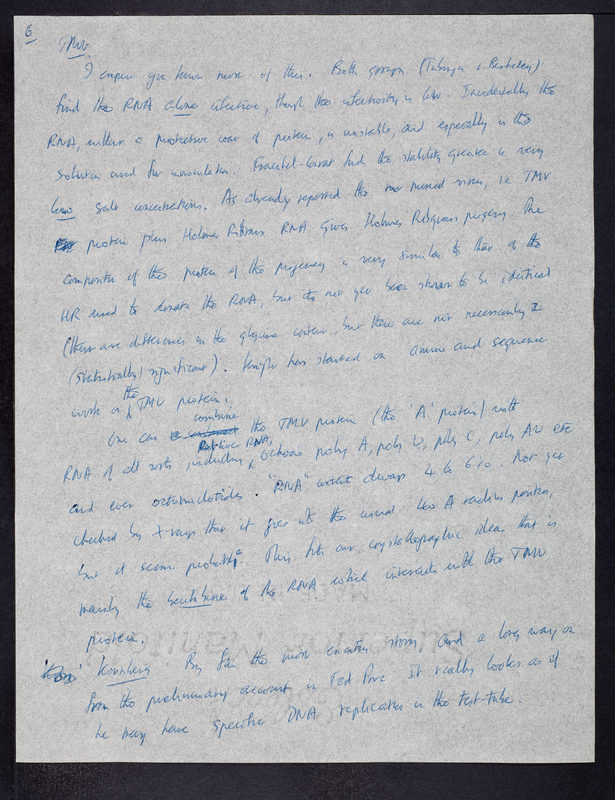 6
TMV
I expect you know more of this. Both groups (Tubingen & Berkeley)
find the RNA alone infective, though the infectivity is low. Incidentally the
RNA, without a protective coat of protein, is unstable, and especially in the
solution used for inoculation. Fraenkel-Conrat finds the stability greater in very
low salt concentrations. As already reported the mixed virus, ie TMV
protein plus Holmes Ribgrass RNA gives Holmes Ribgrass progeny. The
composition of the protein of the progeny is very similar to that of the
HR used to donate the RNA, but its not yet been shown to be identical
(there are differences in the glycine content, but these are not necessarily
(statistically) significant). Knight has started on amino acid sequence
work on the TMV protein.
One can combine the TMV protein (the 'A' protein) with
RNA of all sorts including native RNA, Ochoa's poly A, poly U, poly C, poly AU etc
and even octonucleotides. "RNA" content always 4 to 6%. Not yet
checked by X-rays that it goes into the usual 40 A radius position,
but it seems probable. This fits our crystallographic ideas that it is
mainly the backbone of the RNA which interacts with the TMV
protein.
Kornberg By far the most exciting story, and a long way on
from the preliminary account in Fed Proc. It really looks as if
he may have specific DNA replication in the test-tube.